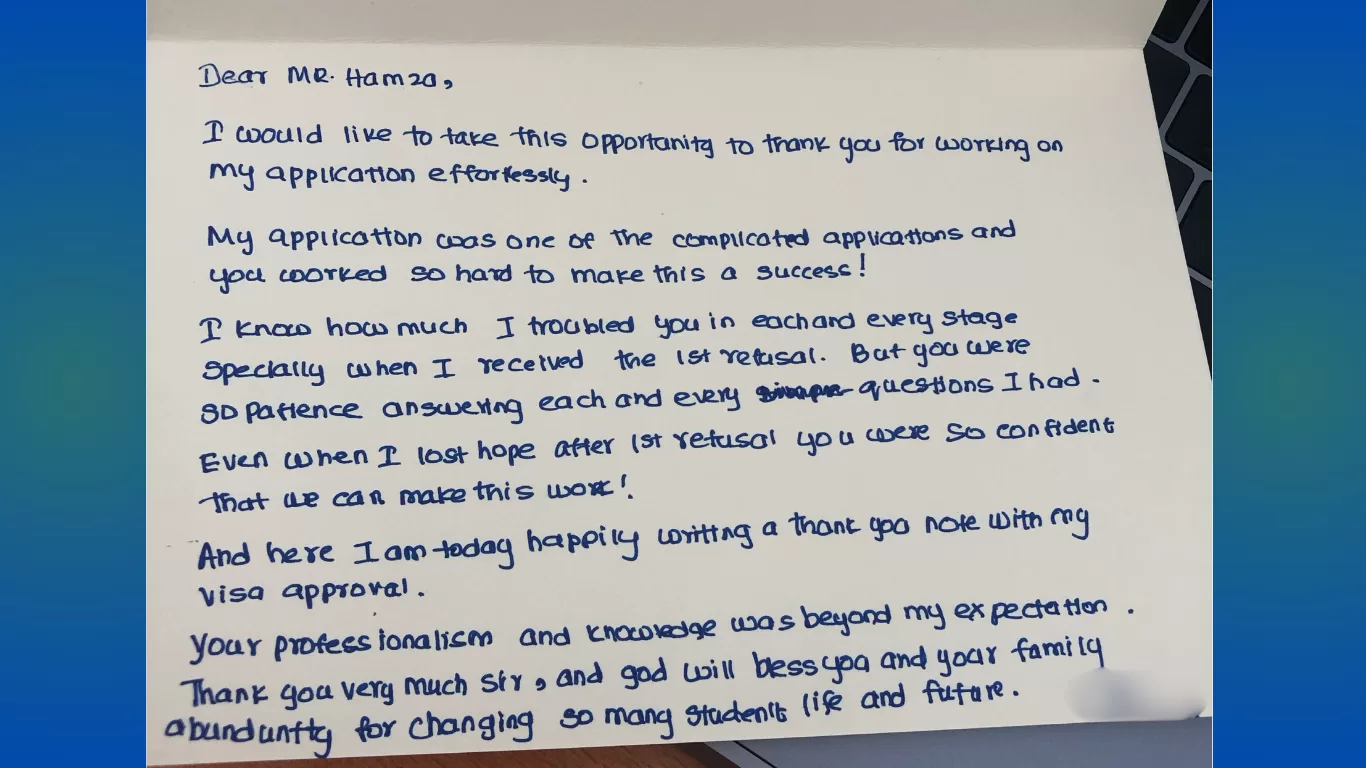 Dear MR. Hamza,
I would like to take this opportunity to thank you for working on
my application effortlessly.
My application was one of the complicated applications and
you worked so hard to make this a success!
I know how much I troubled you in each and every stage
specially when I received the 1st refusal. But you were
so patience answering each and every questions I had.
Even when I lost hope after 1st refusal you were so confident
that we can make this work!
And here I am today happily writting a thank you note with my
visa approval.
Your professionalism and knowledge was beyond my expectation.
Thank you very much sir, and god will bless you and your family
abunduntly for changing so many students life and future.